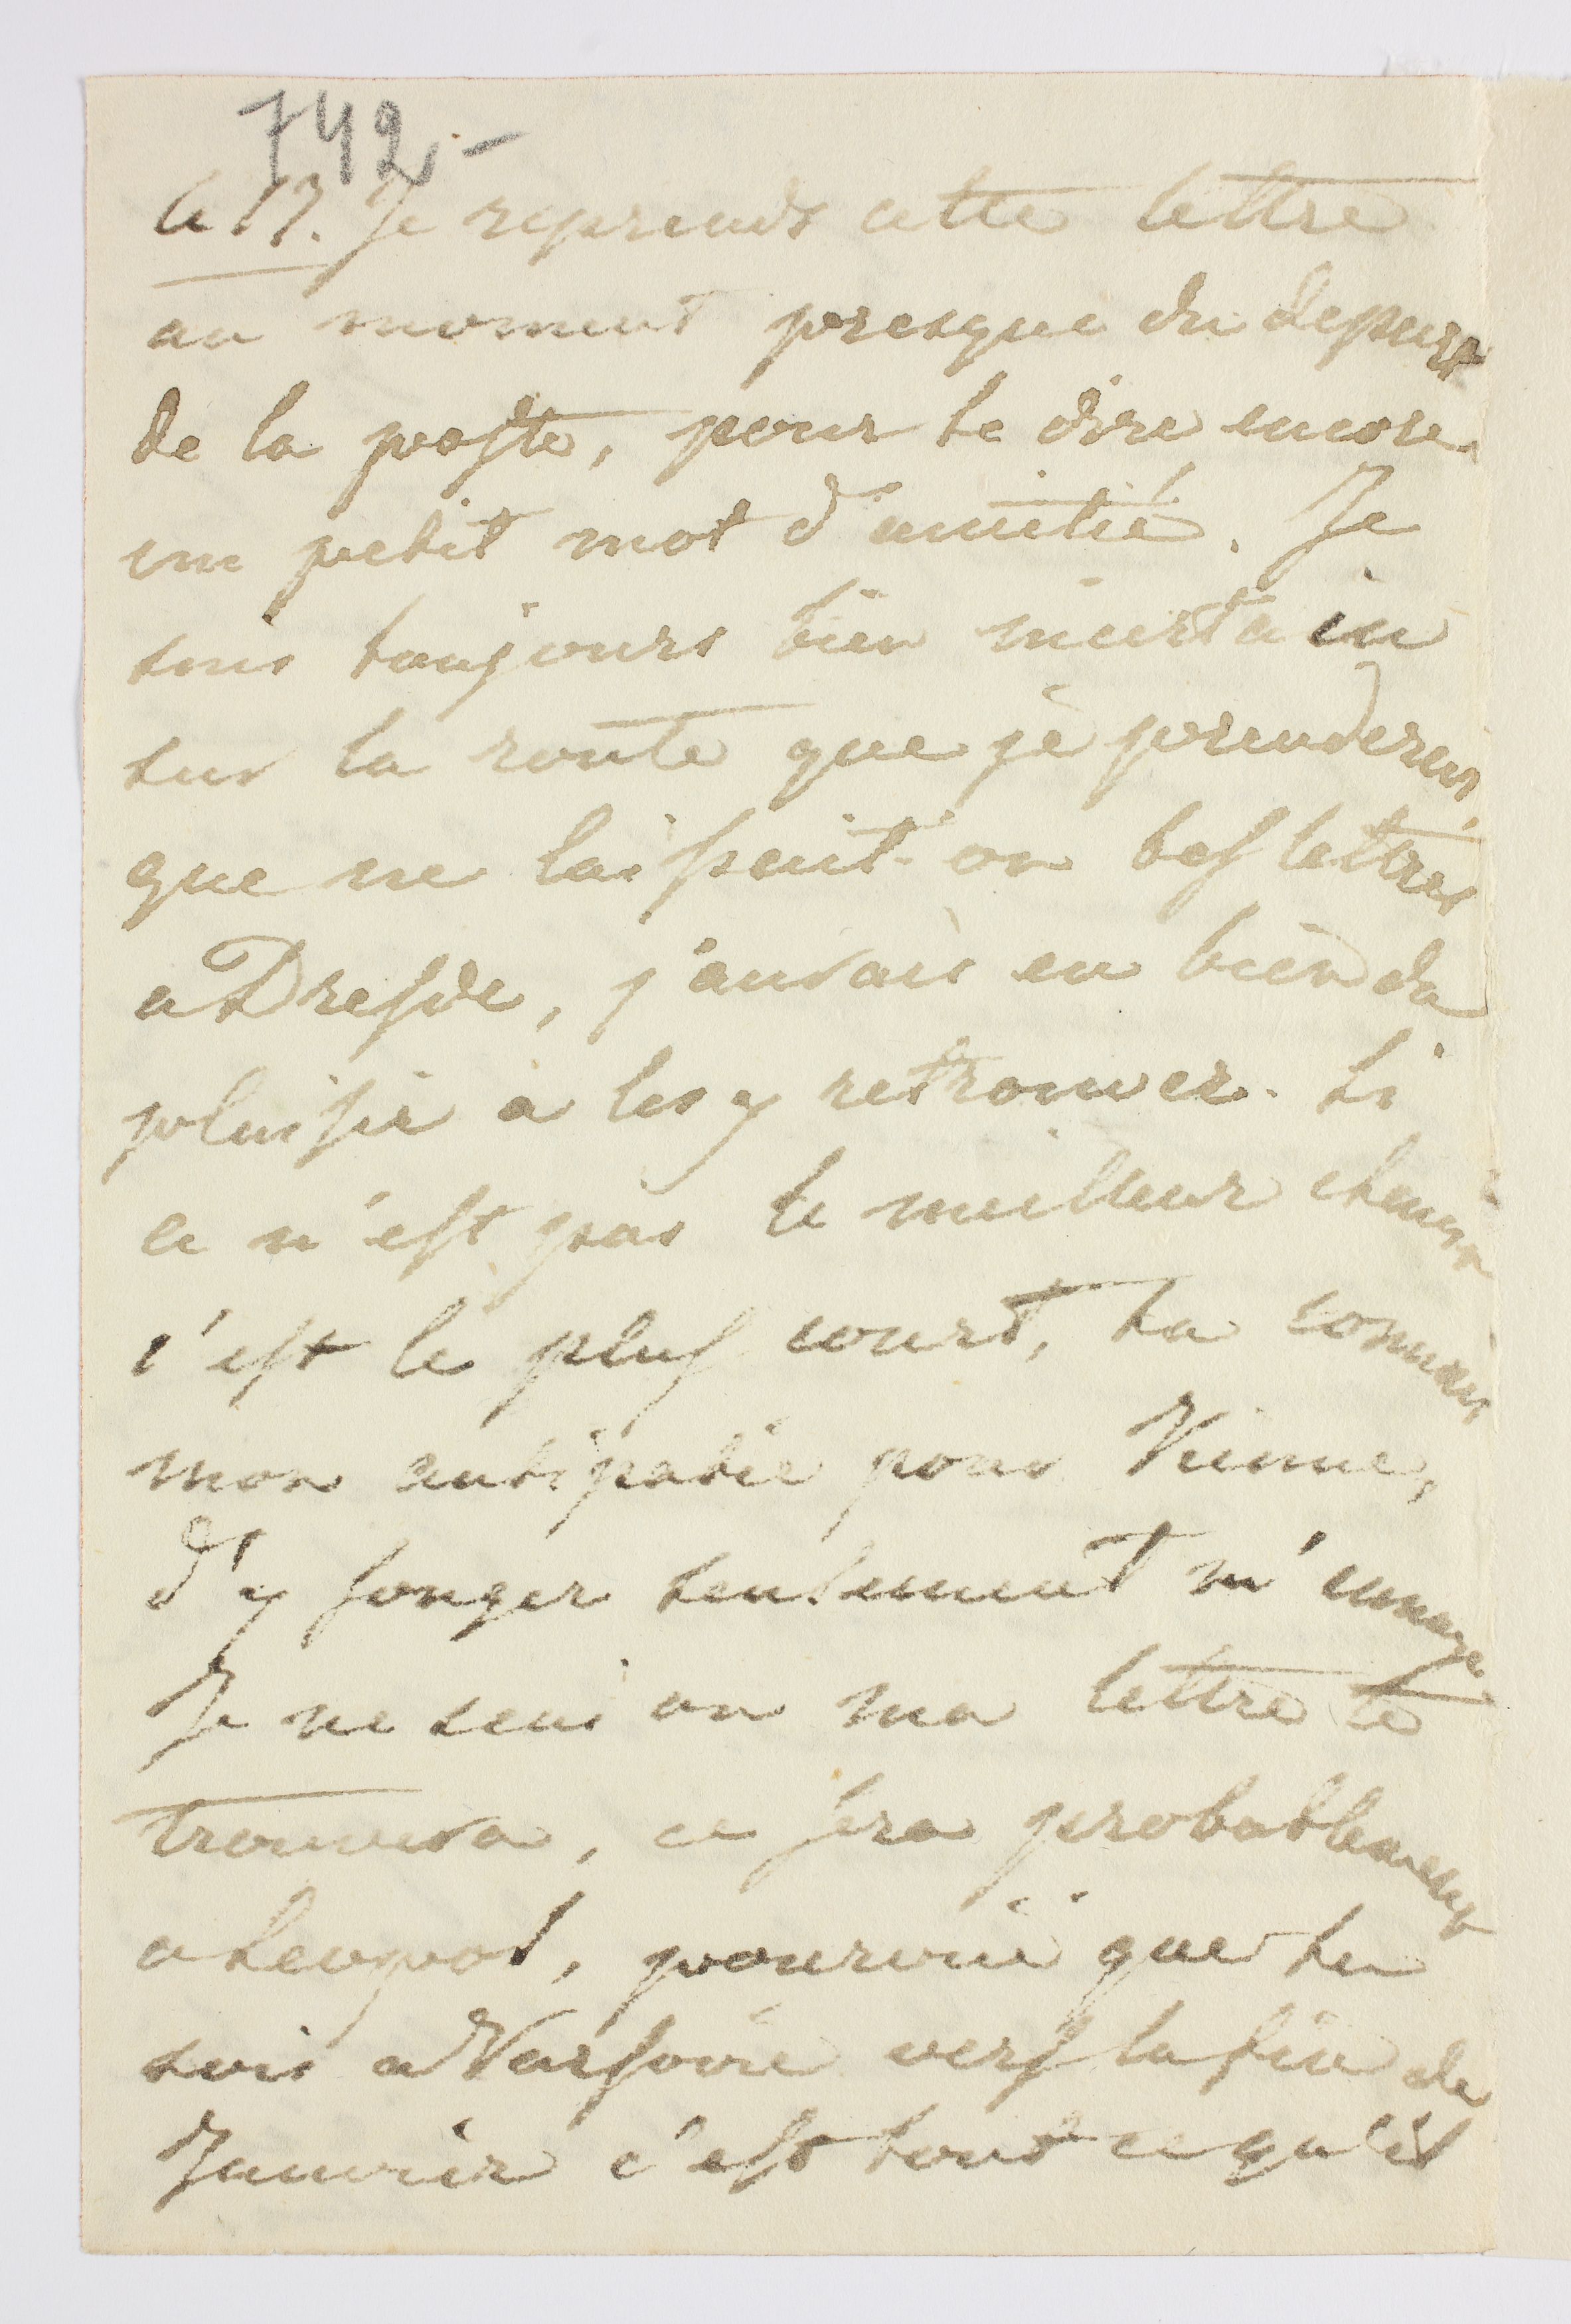 742.-
le 17. Je reprends cette lettre
au moment presque du depart
de la poste, pour te dire encore
un petit mot d'amitié. Je
suis toujours bien incertain
sur la route que je prenderai,
que ne laissait-on les lettres
a Dresde, j'aurais eu bien du
plaisir a les y retrouver. Si
ce n'est pas le meilleur chemin
c'est le plus court, tu connais
mon antipatie pour Vienne,
d'y songer seulement m'ennuye
Je ne sais ou ma lettre te
trouvera, ce sera probablement
a Leopol, pourvuë que tu
sois a Varsovie vers la fin de
Janvier c'est tout ce qu'il